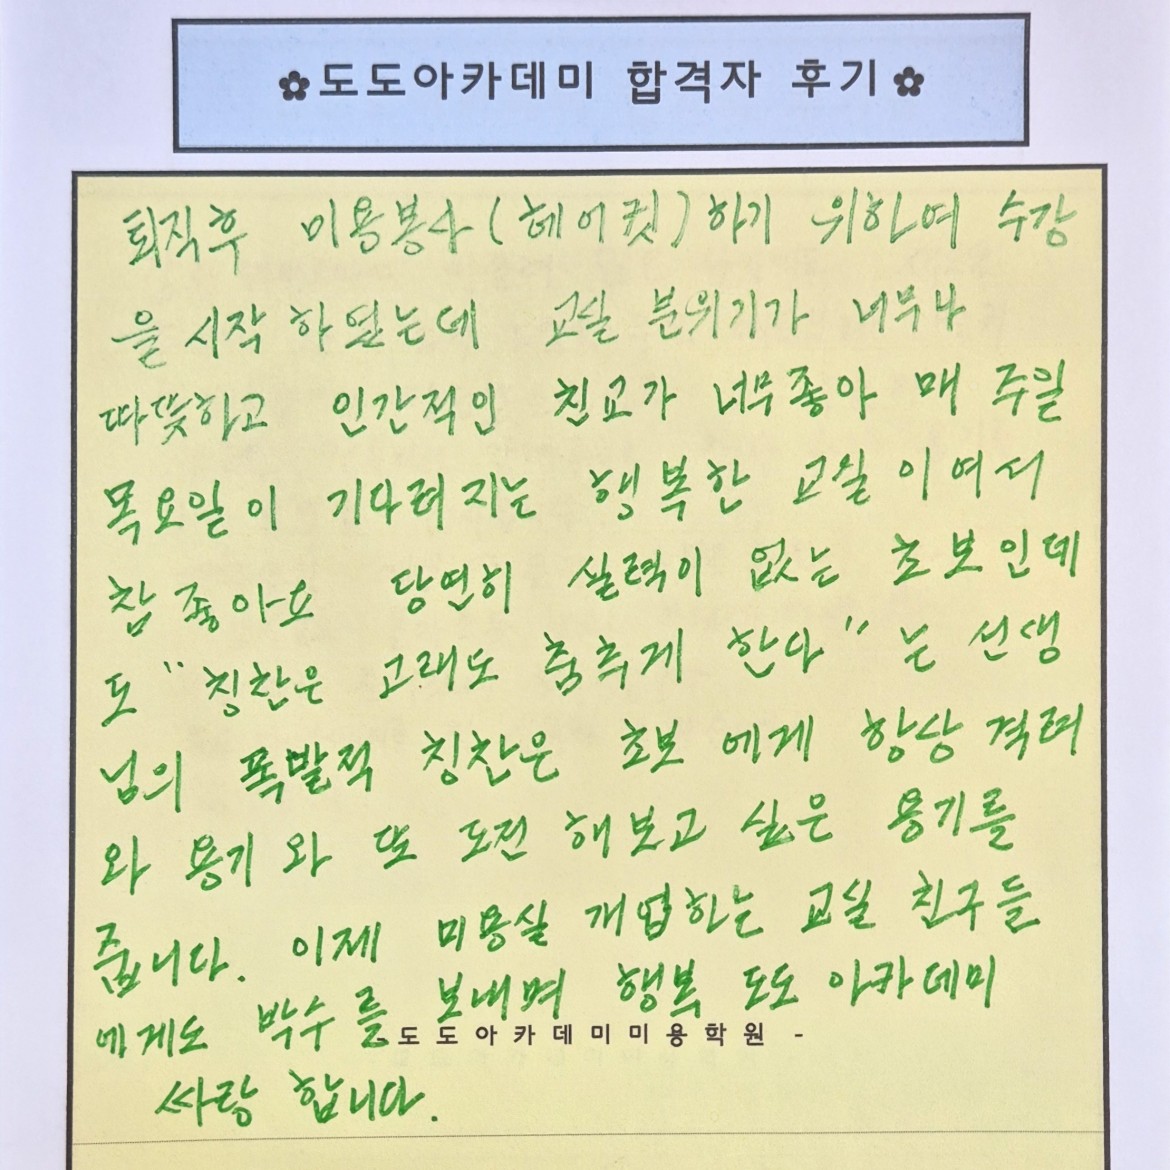 ✿도도아카데미 합격자 후기✿
퇴직후 미용봉사(헤어컷)하기 위하여 수강
을 시작 하였는데 교실 분위기가 너무나
따뜻하고 인간적인 친교가 너무좋아 매 주일
목요일이 기다려지는 행복한 교실이여서
참 좋아요 당연히 실력이 없는 초보인데
도 "칭찬은 고래도 춤추게 한다" 는 선생
님의 폭발적 칭찬은 초보 에게 항상 격려
와 용기 와 또 도전 해보고 싶은 용기를
줍니다. 이제 미용실 개업하는 교실 친구들
에게도 박수를 보내며 행복 도도 아카데미
도도아카데미미용학원 -
싸랑 합니다.